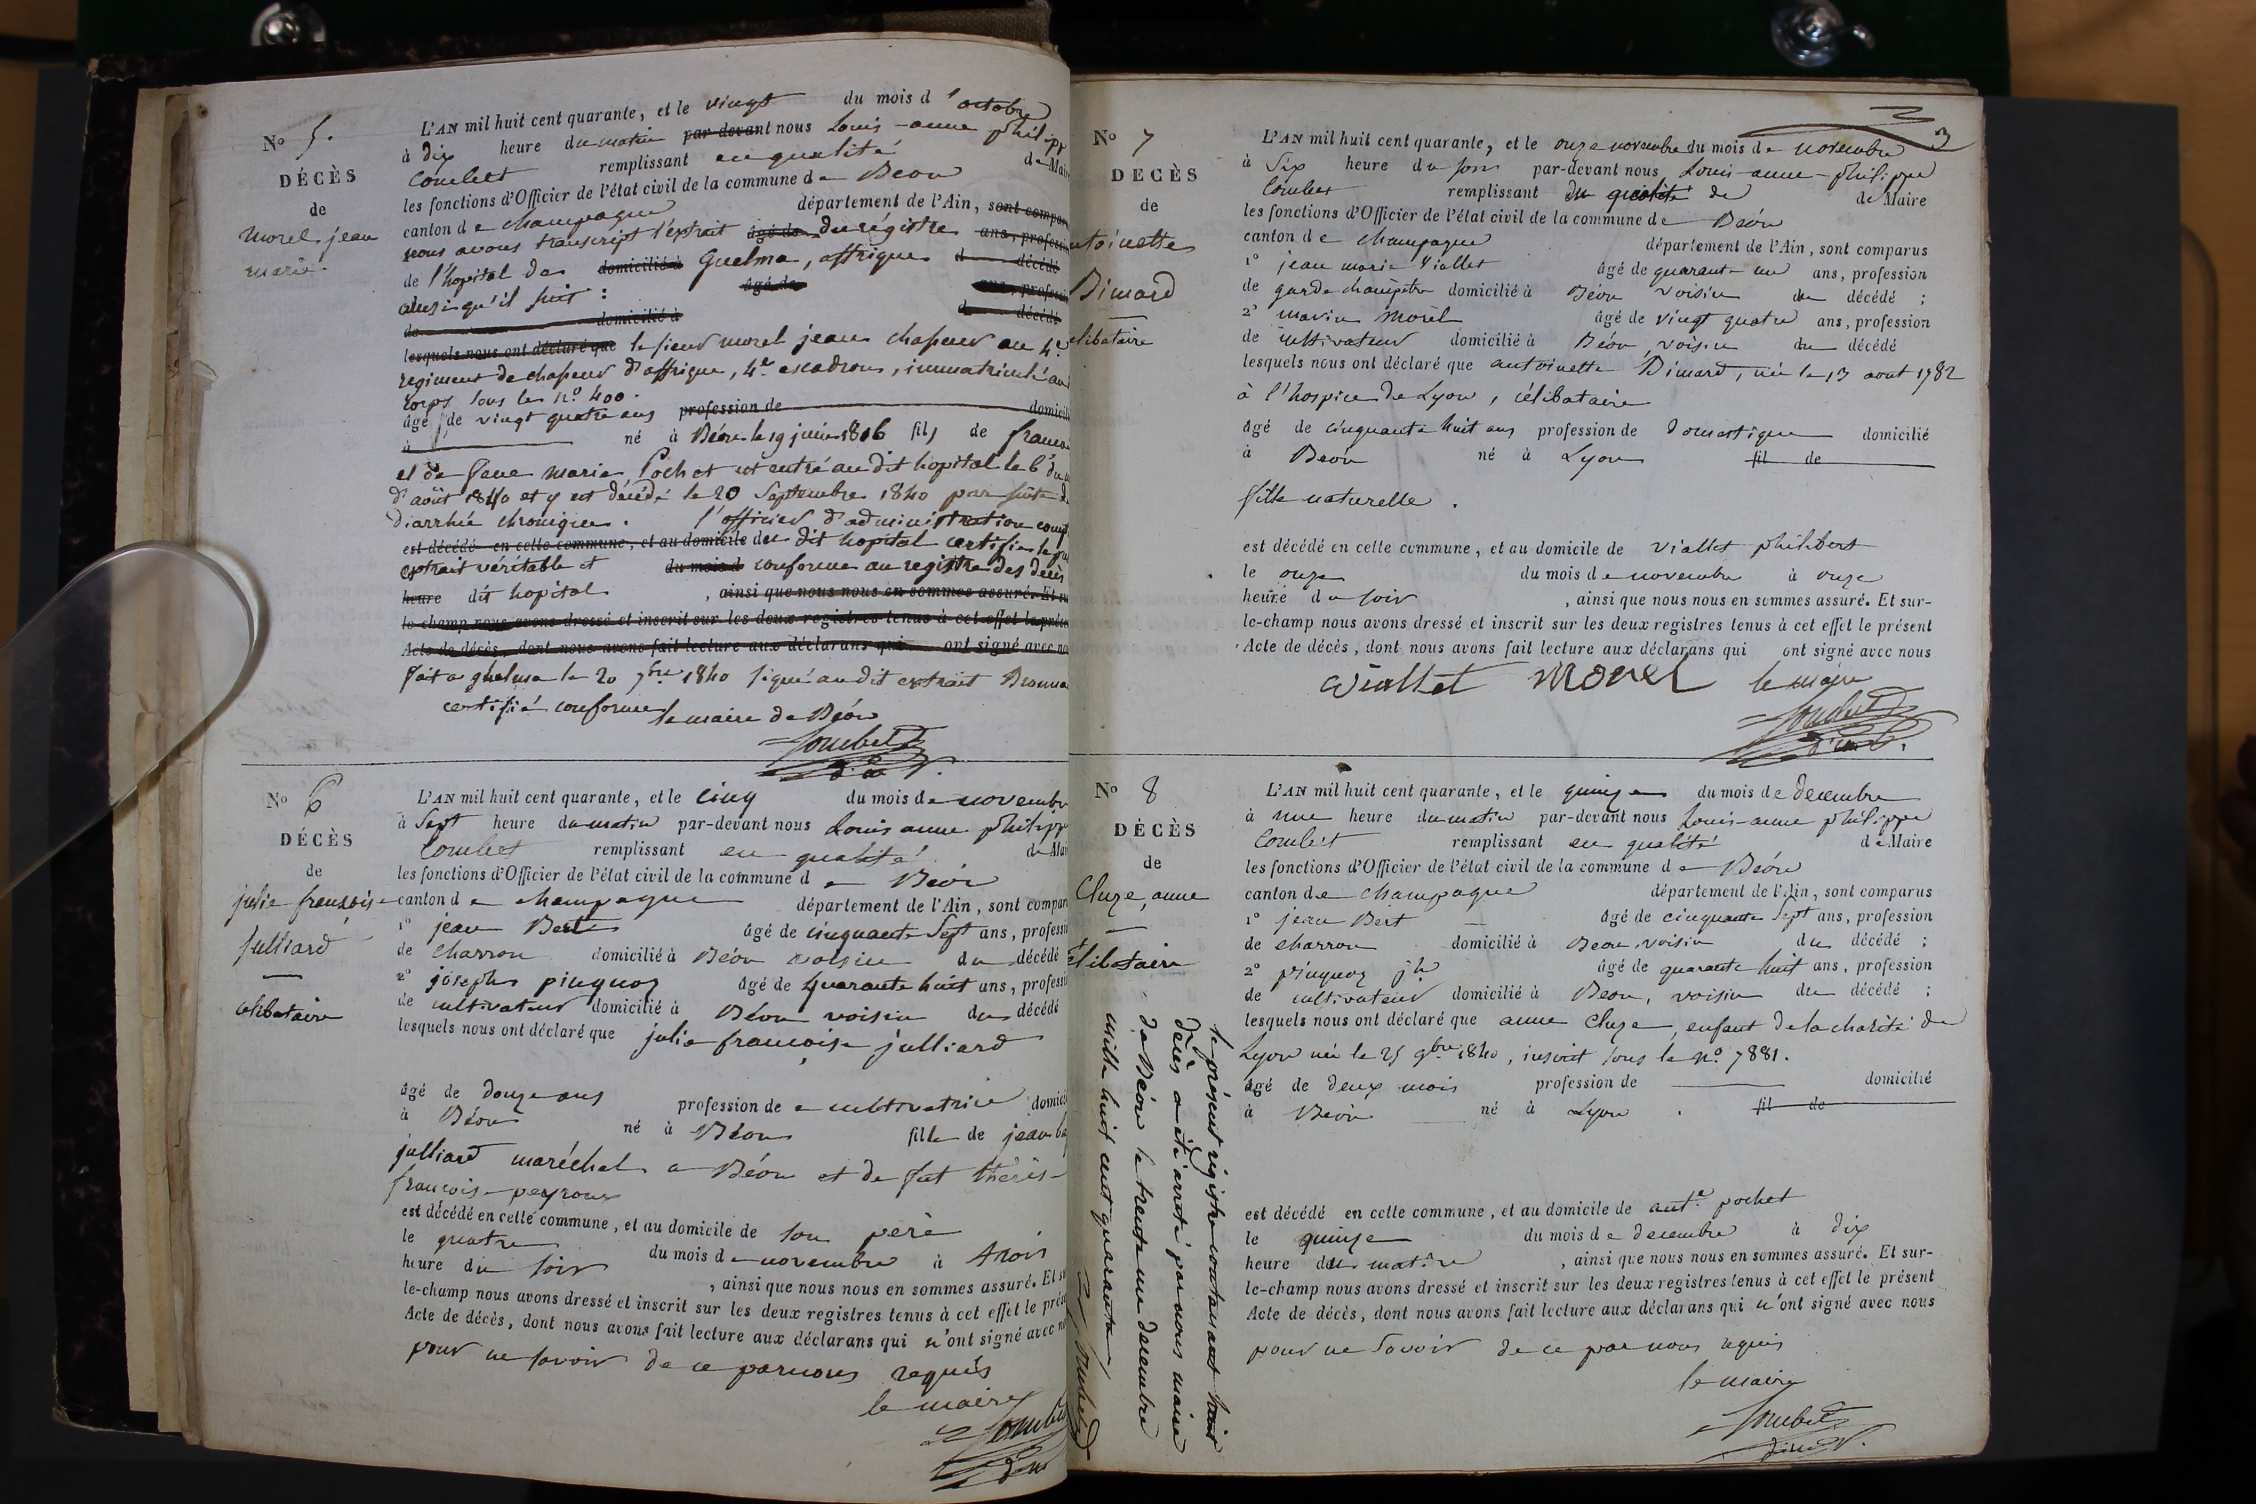 No 5.
DÉCÈS
de
morel jean
marie.
L'AN mil huit cent quarante, et le vingt du mois d'octobre
à dix heure du matin par-devant nous Louis-anne philipp
Combet remplissant en qualité de Mair
les fonctions d'Officier de l'état civil de la commune de Beon
canton de champagne département de l'Ain, sont compar
nous avons transcript l'extrait âgé de du régistre ans, professi
de l'hopital de domicilié à Guelma, affrique d décédé
ainsi qu'il suit : âgé de ans, professi
de domicilié à d décédé
lesquels nous ont déclaré que le sieur morel jean chasseur au 4e
regiment de chasseurs d'affrique, 4e escadron, immatriculé au
corps sous le no. 400.
âgé de vingt quatre ans profession de domicil
à né à Béon le 19 juin 1816 fils de franc
et de feue marie Pochet est entré au dit hopital le 6 du
d'août 1840 et y est décédé le 20 Septembre 1840 par suite d
diarrhée chronique. l'officier d'administration compt
est décédé en cette commune, et au domicile du dit hopital certifie le pre
extrait véritable et du mois d conforme au registre des décès
heure dit hopital , ainsi que nous nous en sommes assuré. Et su
le-champ nous avons dressé et inscrit sur les deux registres tenus à cet effet le prése
Acte de décès, dont nous avons fait lecture aux déclarans qui ont signé avec no
fait a ghelma le 20 7bre 1840 signé au dit extrait
certifié conforme le maire de Béon
Combet
No 6
DÉCÈS
de
julie françoise
julliard
célibataire
L'AN mil huit cent quarante, et le cinq du mois de novembr
à Sept heure du matin par-devant nous Louis anne philipp
Combet remplissant en qualité de Mai
les fonctions d'Officier de l'état civil de la commune de Béon
canton de champagne département de l'Ain, sont compar
1o jean Bert âgé de cinquante Sept ans, professi
de charron domicilié à Béon voisin du décédé
2o joseph pinquoz âgé de quarante huit ans, professi
de cultivateur domicilié à Béon voisin du décédé
lesquels nous ont déclaré que julie françoise julliard
âgé de douze ans profession de cultivatrice domici
à Béon né à Béon fille de jean
julliard maréchal a Béon et de fut thérès
françoise peyroux
est décédé en cette commune, et au domicile de son père
le quatre du mois de novembre à trois
heure du soir , ainsi que nous nous en sommes assuré. Et su
le-champ nous avons dressé et inscrit sur les deux registres tenus à cet effet le prése
Acte de décès, dont nous avons fait lecture aux déclarans qui n'ont signé avec no
pour ne savoir de ce par nous requis
le maire
Combet
3
No 7
DÉCÈS
de
ntoinette
Dimard
elibataire
L'AN mil huit cent quarante, et le onze novembre du mois de novembre
à Six heure du soir par-devant nous Louis-anne-philippe
Combet remplissant en qualité de de Maire
les fonctions d'Officier de l'état civil de la commune de Béon
canton de champagne département de l'Ain, sont comparus
1o jean marie Viallet âgé de quarante un ans, profession
de garde champêtre domicilié à Béon voisin du décédé ;
2o marin Morel âgé de vingt quatre ans, profession
de cultivateur domicilié à Béon, voisin du décédé
lesquels nous ont déclaré que antoinette Dimard, née le 13 aout 1782
à l'hospice de Lyon, célibataire
âgé de cinquante huit ans profession de domestique domicilié
à Beón né à Lyon fil de
fille naturelle.
est décédé en cette commune, et au domicile de viallet philibert
le onze du mois de novembre à onze
heure du soir , ainsi que nous nous en sommes assuré. Et sur-
le-champ nous avons dressé et inscrit sur les deux registres tenus à cet effet le présent
Acte de décès, dont nous avons fait lecture aux déclarans qui ont signé avec nous
viallet Morel le maire
Combet
No 8
DÉCÈS
de
Cluze, anne
célibataire
L'AN mil huit cent quarante, et le quinze du mois de decembre
à une heure du matin par-devant nous Louis-anne philippe
Combet remplissant en qualité de Maire
les fonctions d'Officier de l'état civil de la commune de Béon
canton de champagne département de l'Ain, sont comparus
1o jean Bert âgé de cinquante Sept ans, profession
de charron domicilié à Beon, voisin du décédé ;
2o pinquoz jh âgé de quarante huit ans, profession
de cultivateur domicilié à Beon, voisin du décédé ;
lesquels nous ont déclaré que anne Cluze, enfant de la charité de
Lyon née le 25 9bre 1840, inscrit sous le no. 7881.
âgé de deux mois profession de domicilié
à Béon né à Lyon. fil de
est décédé en cette commune, et au domicile de ante pochet
le quinze du mois de decembre à dix
heure du matin , ainsi que nous nous en sommes assuré. Et sur-
le-champ nous avons dressé et inscrit sur les deux registres tenus à cet effet le présent
Acte de décès, dont nous avons fait lecture aux déclarans qui n'ont signé avec nous
pour ne savoir de ce par nous requis
le maire
Combet
le présent régistre contenant huit
décès a été arreté par nous maire
de Béon le trente une decembre
mille huit cent quarante
Combet